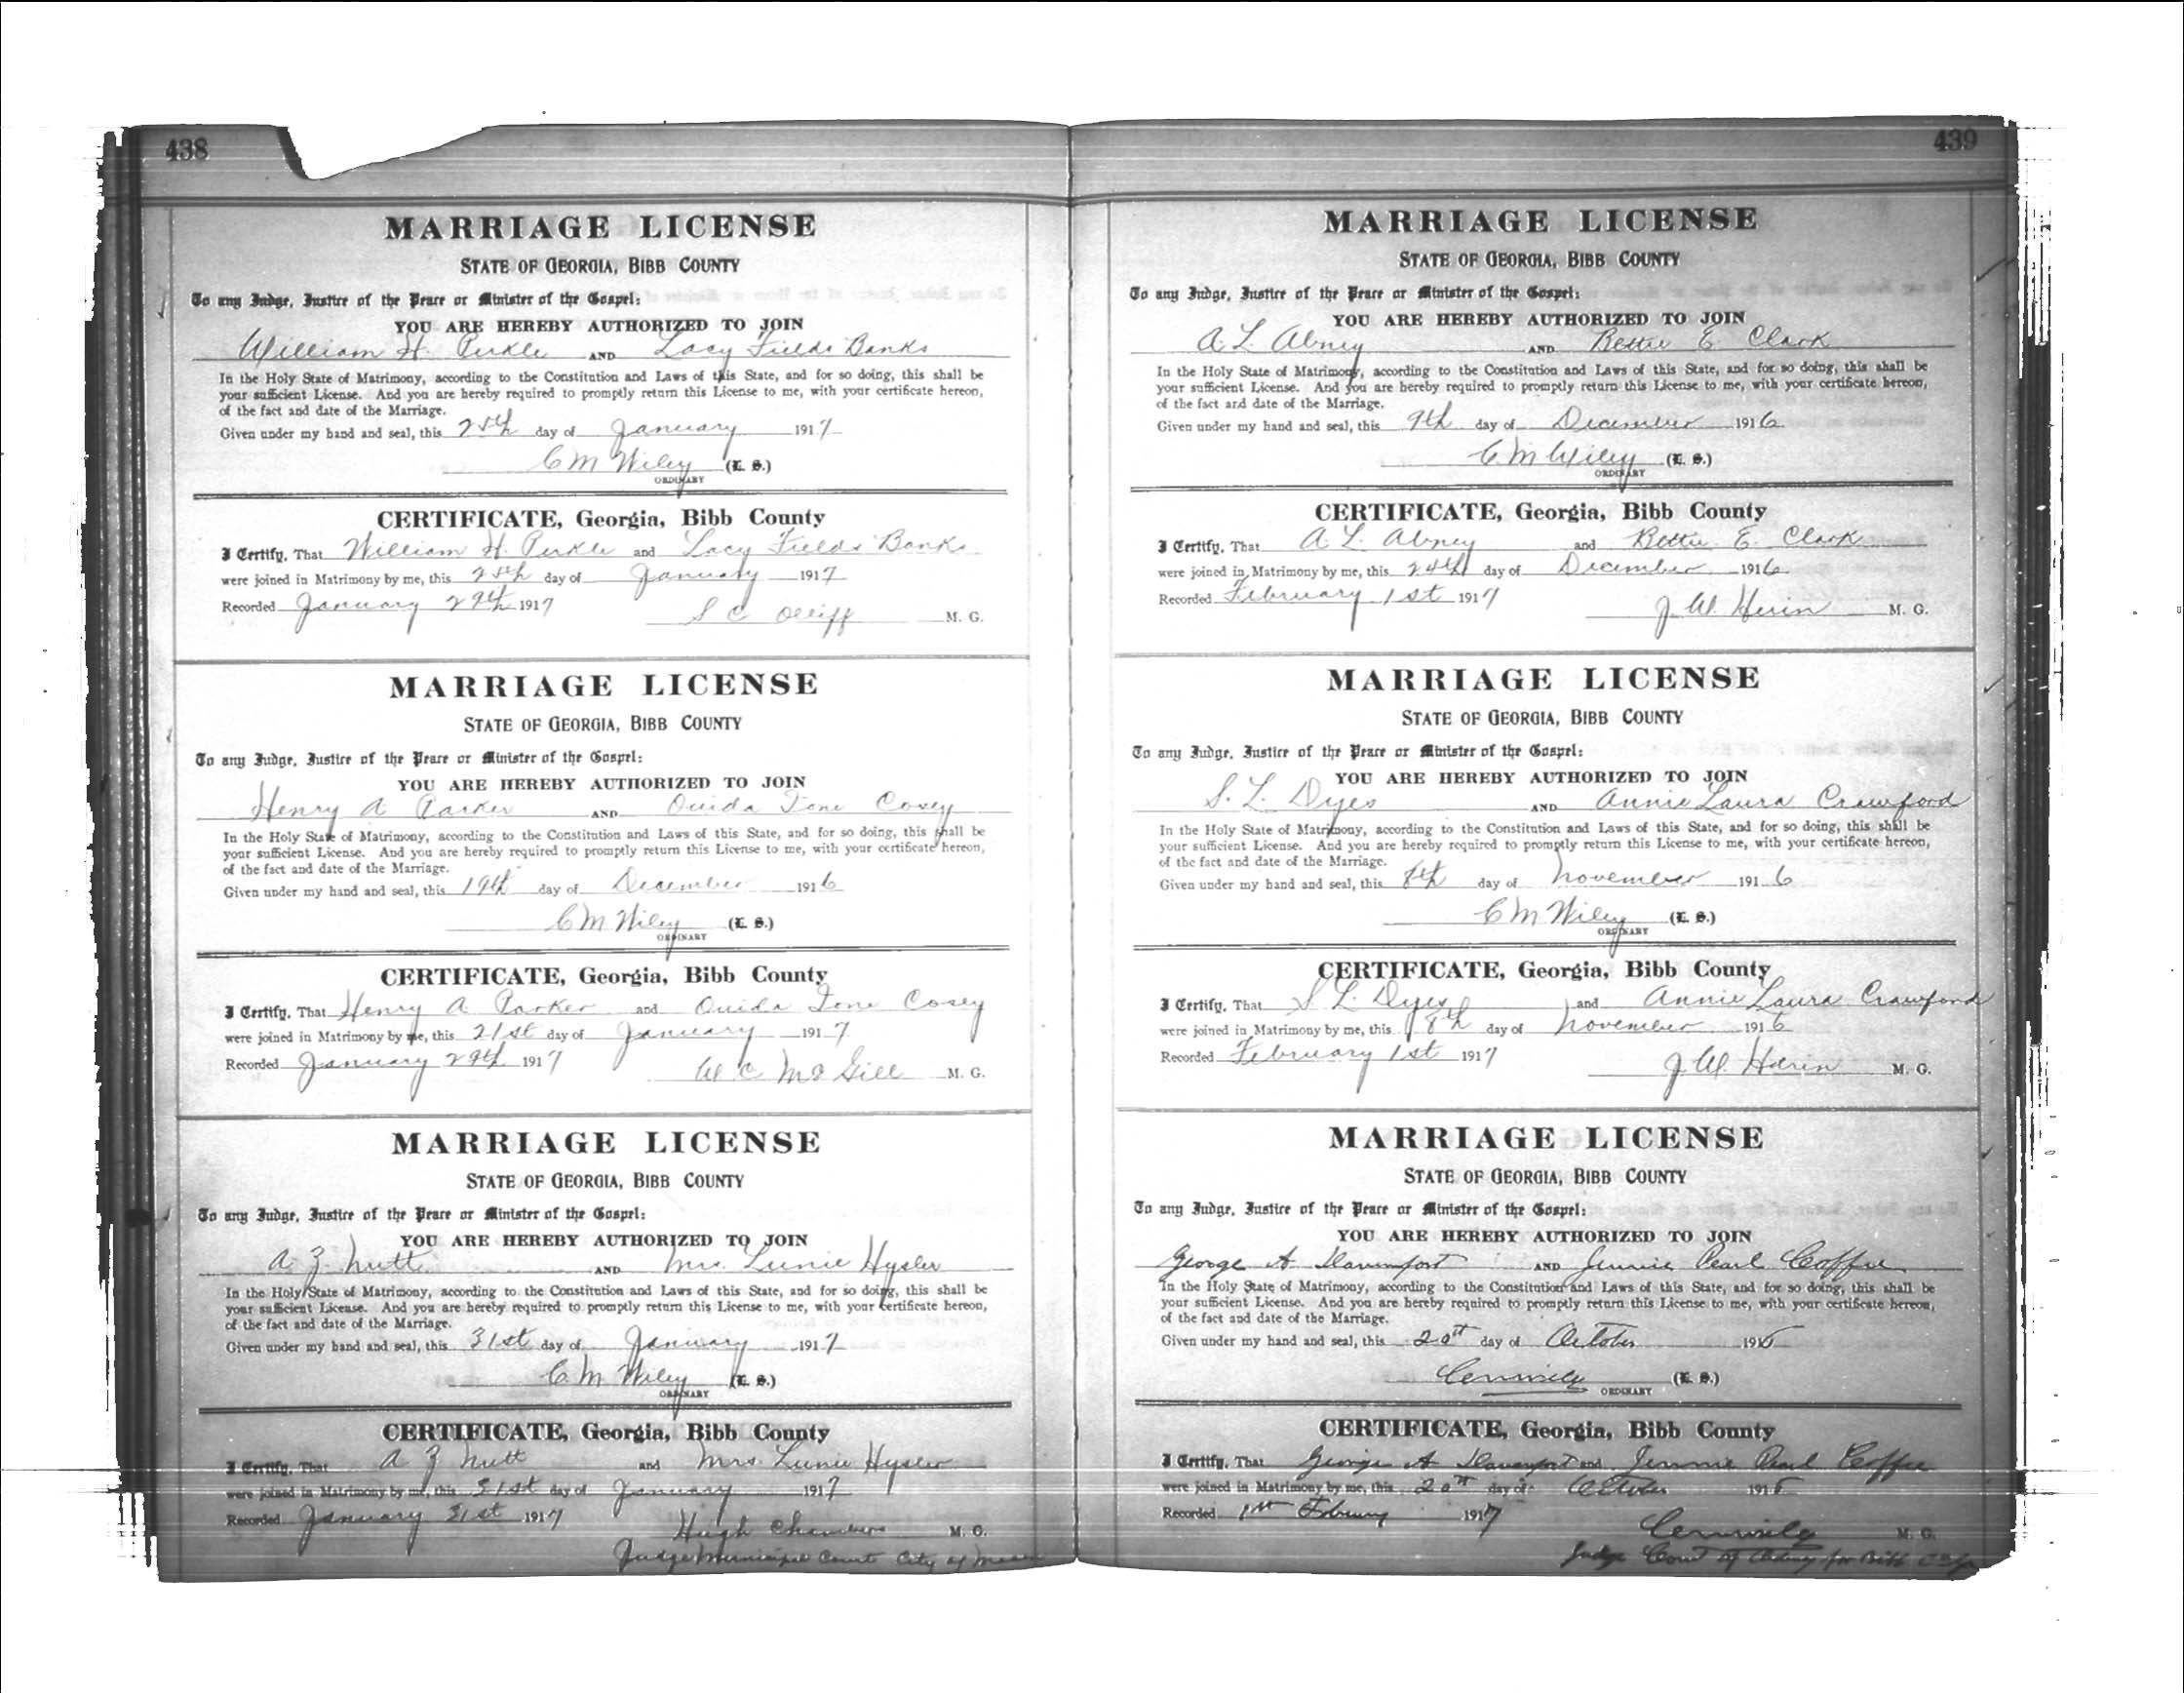 438
MARRIAGE LICENSE
STATE OF GEORGIA, BIBB COUNTY
To any Judge, Justice of the Peace or Minister of the Gospel:
YOU ARE HEREBY AUTHORIZED TO JOIN
William H. Pirkle AND Lacy Fields Banks
In the Holy State of Matrimony, according to the Constitution and Laws of this State, and for so doing, this shall be
your sufficient License. And you are hereby required to promptly return this License to me, with your certificate hereon,
of the fact and date of the Marriage.
Given under my hand and seal, this 25th day of January 1917
C M Wiley (L. S.)
ORDINARY
CERTIFICATE, Georgia, Bibb County
I Certify, That William H. Pirkle and Lacy Fields Banks
were joined in Matrimony by me, this 25th day of January 1917
Recorded January 29th 1917
S C Olliff M. G.
MARRIAGE LICENSE
STATE OF GEORGIA, BIBB COUNTY
To any Judge, Justice of the Peace or Minister of the Gospel:
YOU ARE HEREBY AUTHORIZED TO JOIN
Henry A Parker AND Ouida Ione Cosey
In the Holy State of Matrimony, according to the Constitution and Laws of this State, and for so doing, this shall be
your sufficient License. And you are hereby required to promptly return this License to me, with your certificate hereon,
of the fact and date of the Marriage.
Given under my hand and seal, this 19th day of December 1916
C M Wiley (L. S.)
ORDINARY
CERTIFICATE, Georgia, Bibb County
I Certify, That Henry A Parker and Ouida Ione Cosey
were joined in Matrimony by me, this 21st day of January 1917
Recorded January 29th 1917
W C McGill M. G.
MARRIAGE LICENSE
STATE OF GEORGIA, BIBB COUNTY
To any Judge, Justice of the Peace or Minister of the Gospel:
YOU ARE HEREBY AUTHORIZED TO JOIN
A. Z. Nutt AND Mrs. Lunie Hysler
In the Holy State of Matrimony, according to the Constitution and Laws of this State, and for so doing, this shall be
your sufficient License. And you are hereby required to promptly return this License to me, with your certificate hereon,
of the fact and date of the Marriage.
Given under my hand and seal, this 31st day of January 1917
C M Wiley (L. S.)
ORDINARY
CERTIFICATE, Georgia, Bibb County
I Certify, That A Z Nutt and Mrs Lunie Hysler
were joined in Matrimony by me, this 31st day of January 1917
Recorded January 31st 1917
Hugh Chambers M. G.
Judge Municipal Court City of Macon
439
MARRIAGE LICENSE
STATE OF GEORGIA, BIBB COUNTY
To any Judge, Justice of the Peace or Minister of the Gospel:
YOU ARE HEREBY AUTHORIZED TO JOIN
A. L. Abney AND Bettie E. Clark
In the Holy State of Matrimony, according to the Constitution and Laws of this State, and for so doing, this shall be
your sufficient License. And you are hereby required to promptly return this License to me, with your certificate hereon,
of the fact and date of the Marriage.
Given under my hand and seal, this 9th day of December 1916
C. M Wiley (L. S.)
ORDINARY
CERTIFICATE, Georgia, Bibb County
I Certify, That A. L. Abney and Bettie E. Clark
were joined in Matrimony by me, this 24th day of December 1916
Recorded February 1st 1917
J. W. Herin M. G.
MARRIAGE LICENSE
STATE OF GEORGIA, BIBB COUNTY
To any Judge, Justice of the Peace or Minister of the Gospel:
YOU ARE HEREBY AUTHORIZED TO JOIN
S. L. Dyes AND Annie Laura Crawford
In the Holy State of Matrimony, according to the Constitution and Laws of this State, and for so doing, this shall be
your sufficient License. And you are hereby required to promptly return this License to me, with your certificate hereon,
of the fact and date of the Marriage.
Given under my hand and seal, this 8th day of November 1916
C M Wiley (L. S.)
ORDINARY
CERTIFICATE, Georgia, Bibb County
I Certify, That S L Dyes and Annie Laura Crawford
were joined in Matrimony by me, this 8th day of November 1916
Recorded February 1st 1917
J. W. Herin M. G.
MARRIAGE LICENSE
STATE OF GEORGIA, BIBB COUNTY
To any Judge, Justice of the Peace or Minister of the Gospel:
YOU ARE HEREBY AUTHORIZED TO JOIN
George A Davenport AND Jennie Pearl Coffee
In the Holy State of Matrimony, according to the Constitution and Laws of this State, and for so doing, this shall be
your sufficient License. And you are hereby required to promptly return this License to me, with your certificate hereon,
of the fact and date of the Marriage.
Given under my hand and seal, this 20th day of October 1916
CMWiley (L. S.)
ORDINARY
CERTIFICATE, Georgia, Bibb County
I Certify, That George A Davenport and Jennie Pearl Coffee
were joined in Matrimony by me, this 20th day of October 1916
Recorded 1st February 1917
CMWiley M. G.
Judge Court of Ordinary for Bibb